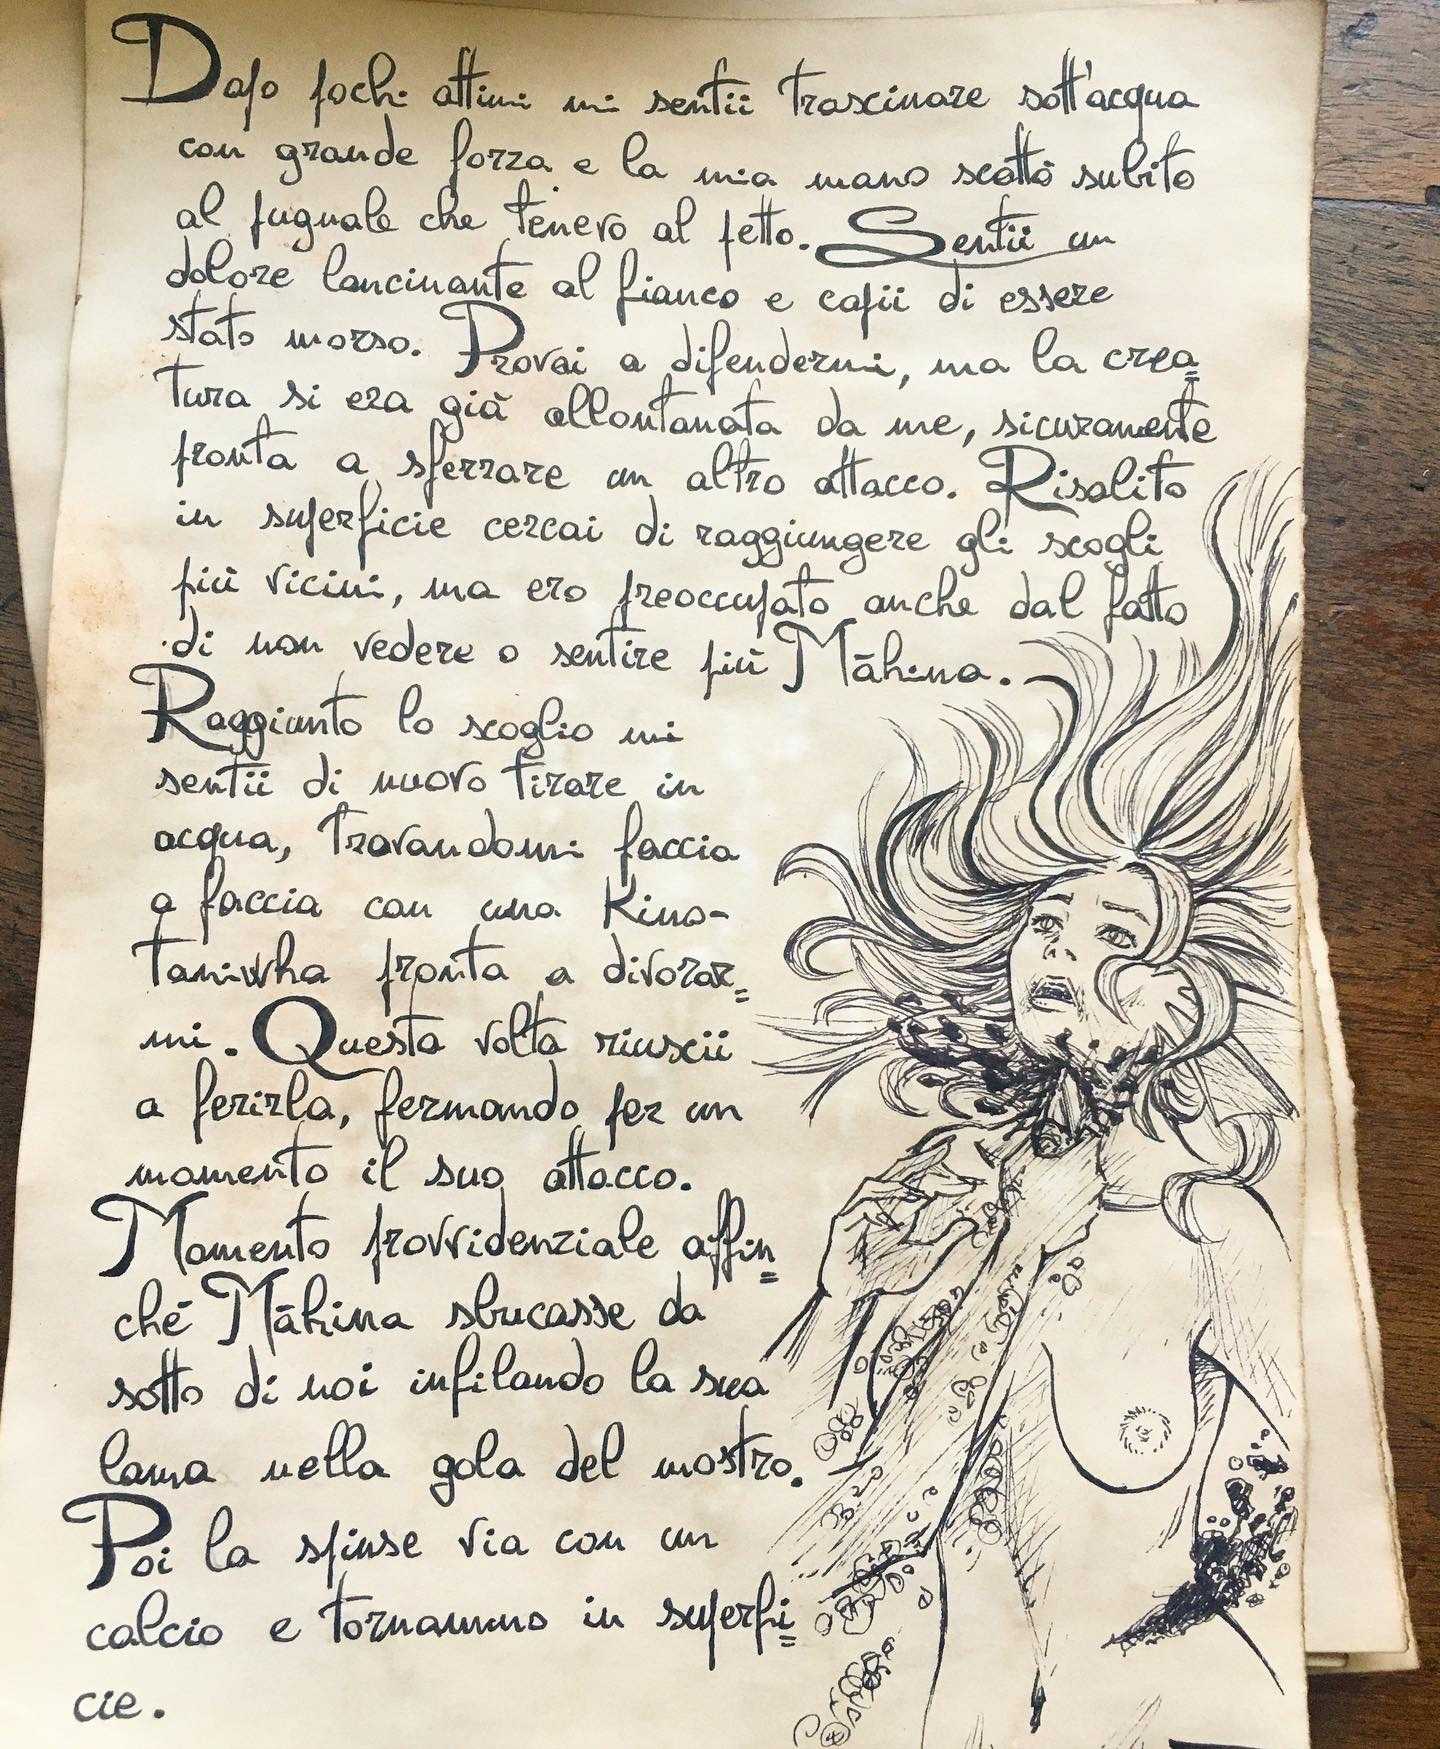 Dopo pochi attimi mi sentii trascinare sott'acqua
con grande forza e la mia mano scattò subito
al pugnale che tenevo al petto. Sentii un
dolore lancinante al fianco e capii di essere
stato morso. Provai a difendermi, ma la crea=
tura si era già allontanata da me, sicuramente
pronta a sferrare un altro attacco. Risalito
in superficie cercai di raggiungere gli scogli
più vicini, ma ero preoccupato anche dal fatto
di non vedere o sentire più Māhina.
Raggiunto lo scoglio mi
sentii di nuovo tirare in
acqua, trovandomi faccia
a faccia con una Kino-
taniwha pronta a divorar=
mi. Questa volta riuscii
a ferirla, fermando per un
momento il suo attacco.
Momento provvidenziale affin=
ché Māhina sbucasse da
sotto di noi infilando la sua
lama nella gola del mostro.
Poi la spinse via con un
calcio e tornammo in superfi=
cie.